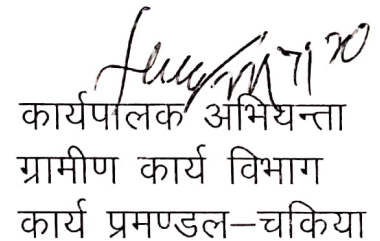 कार्यपालक अभियन्ता
ग्रामीण कार्य विभाग
कार्य प्रमण्डल–चकिया